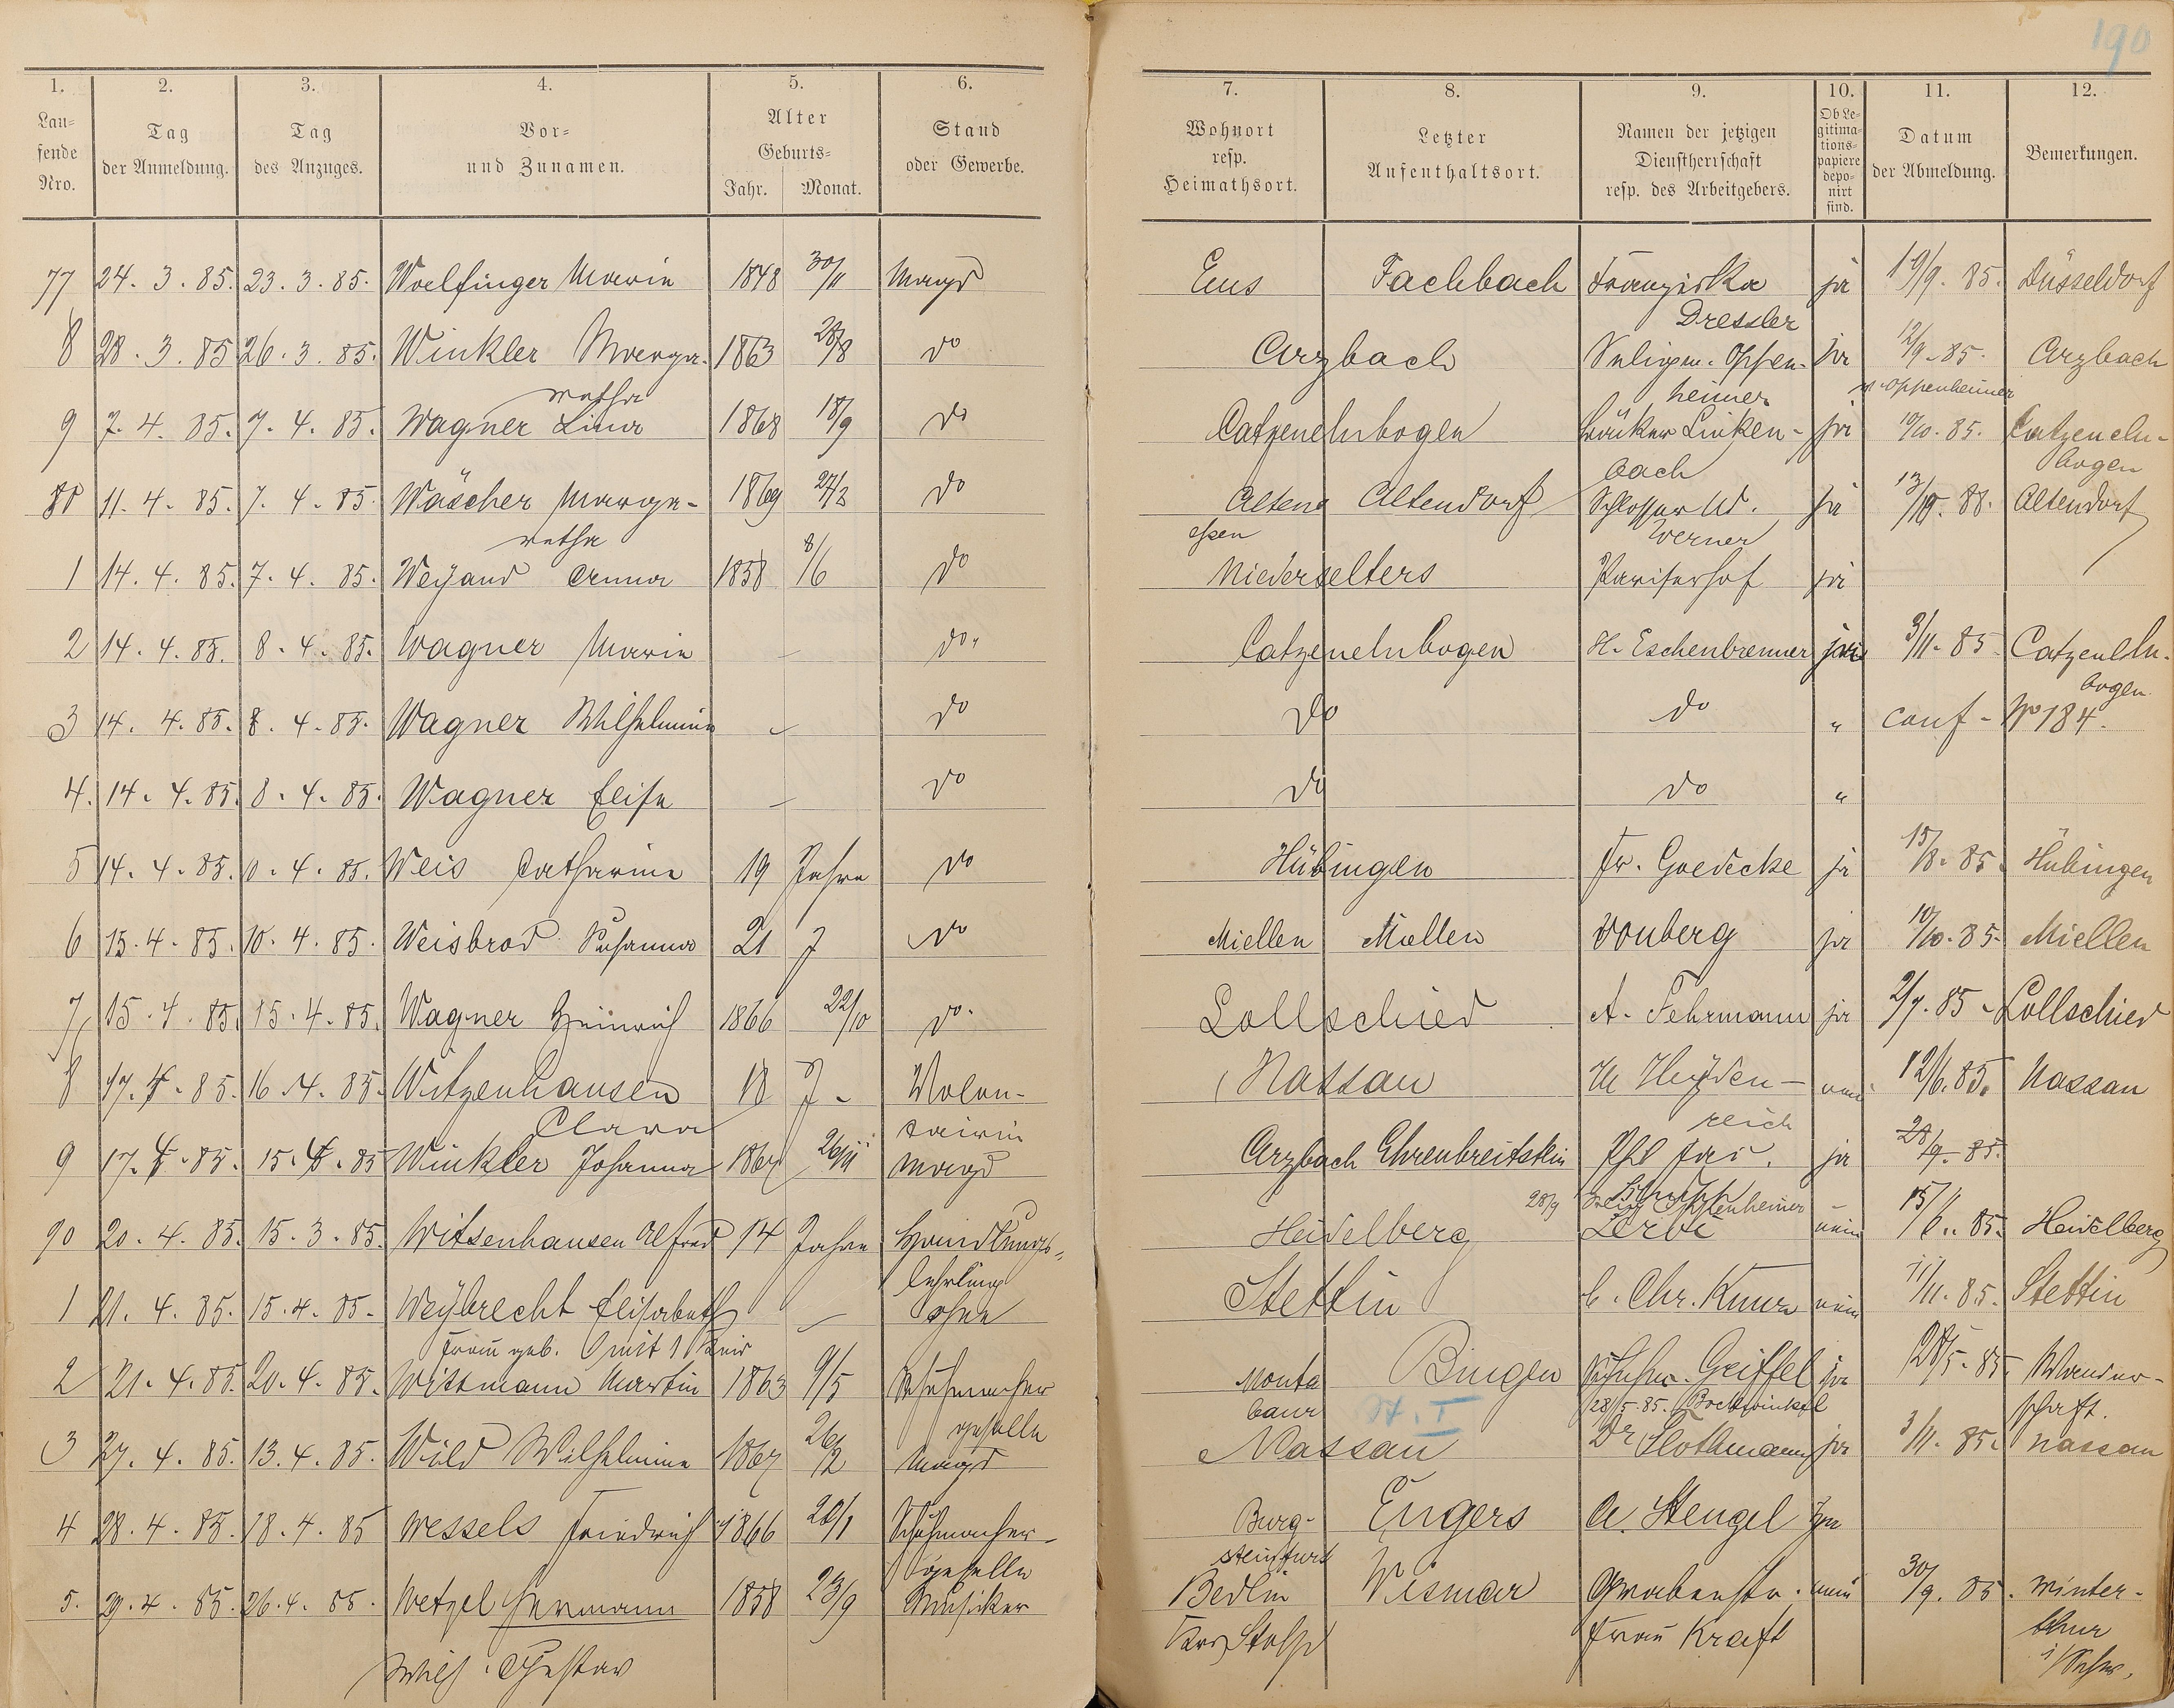 190
1. 2. 3. 4. 5. 6. 7. 8. 9. 10. 11. 12.
Lau-
fende
Nro.
Tag
der Anmeldung.
Tag
des Anzuges.
Vor-
und Zunamen.
Alter
Geburts-
Jahr. Monat.
Stand
oder Gewerbe.
Wohnort
resp.
Heimathsort.
Letzter
Aufenthaltsort.
Namen der jetzigen
Dienstherrschaft
resp. des Arbeitgebers.
Ob Le-
gitima-
tions-
papiere
depo-
nirt
sind.
Datum
der Abmeldung.
Bemerkungen.
77 24. 3. 85. 23. 3. 85. Woelfinger Marie 1848 30/11 Magd Ems Fachbach Franziska ja 19/9. 85. Düsseldorf
Dressler
8 28. 3. 85 26. 3. 85. Winkler Marga- 1863 28/8 do Arzbach Seligm. Oppen- ja 12/9. 85. Arzbach
retha heimer Oppenheimer
9 7. 4. 85. 7. 4. 85. Wagner Lina 1868 18/9 do Catzenelnbogen Linken- ja 10/10. 85. Catzeneln-
bach bogen
80 11. 4. 85. 7. 4. 85. Wäscher Marga- 1869 27/2 do Alten Altendorf Schlosser Ad. ja 13/10. 88. Altendorf
retha essen Werner
1 14. 4. 85. 7. 4. 85. Weÿand Anna 1858 8/6 do Niederselters Pariserhof ja
2 14. 4. 85. 8. 4. 85. Wagner Marie — do. Catzenelnbogen H. Eschenbrenner ja 3/11. 85. Catzeneln-
bogen
3 14. 4. 85. 8. 4. 85. Wagner Wilhelmine — do do do " conf. No 184.
4. 14. 4. 85. 8. 4. 85. Wagner Elise — do do do "
5 14. 4. 85. 4. 85. Weis Catharine 19 Jahre do Hübingen Fr. Goedecke ja 15/8. 85. Hübingen
6 15. 4. 85. 10. 4. 85. Weisbrod Susanna 21 J do Miellen Miellen Vonberg ja 10/10. 85. Miellen
7 15. 4. 85. 15. 4. 85. Wagner Heinrich 1866 22/10 do. Lollschied A. Fehrmann ja 2/7. 85 Lollschied
8 17. 4. 85. 16. 4. 85. Witzenhausen 18 J. Volon- Nassau Heÿden- nein 12/6. 85. Nassau
Clara tairin reich
9 17. 4. 85. 15. 4. 85 Winkler Johanna 1867 Magd Arzbach Ehrenbreitstein Phl ja 28/9. 85.
28/9 Oppenheimer
90 20. 4. 85. 15. 3. 85. Witsenhausen Alfred 14 Jahre Handlungs- Heidelberg nein 15/6. 85. Heidelberg
lehrling
1 21. 4. 85. 15. 4. 85. Weÿbrecht Elisabeth — ohne Stettin Chr. nein 11/11. 85. Stettin
Frau geb. mit 1 Kind
2 21. 4. 85. 20. 4. 85. Wittmann Martin 1863 9/5 Schuhmacher Monta Bingen Schuhm. Geiffel ja 28/5. 85. Wander-
geselle baur H. I 28/5. 85. schaft.
3 27. 4. 85. 13. 4. 85. Wild Wilhelmine 1867 26/2 Magd Nassau Dr Slothmann ja 3/11. 85. Nassau
4 28. 4. 85. 18. 4. 85 Wessels Friedrich 1866 20/1 Schuhmacher- Burg- Engers A. Stengel ja
geselle steinfurt
5. 29. 4. 85. 26. 4. 85. Wetzel Hermann 1858 23/9 Musiker Berlin Wismar Grabenstr. nein 30/9. 85. Winter-
Wilh. Gustav Stolp Frau Kraft thur
i/Schw.